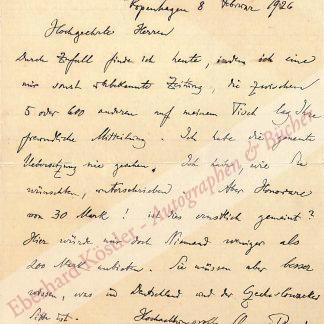 Kopenhagen 8 Februar 1926
Hochgeehrte Herren
Durch Zufall finde ich heute, indem ich eine
mir sonst unbekannte Zeitung, die zwischen
5 oder 600 anderen auf meinem Tisch lag Ihre
freundliche Mitteilung. Ich habe die genannte
Uebersetzung nie gesehen. Ich habe, wie Sie
wünschten, unterschrieben. Aber Honorare
von 30 Mark! ist dies ernstlich gemeint?
Hier würde mir doch Niemand weniger als
200 Mark anbieten. Sie wissen aber besser
wissen, was in Deutschland und der Czechoslowakei
Sitte ist.
Hochachtungsvoll
Eberhard Köstler - Autographen & Bücher